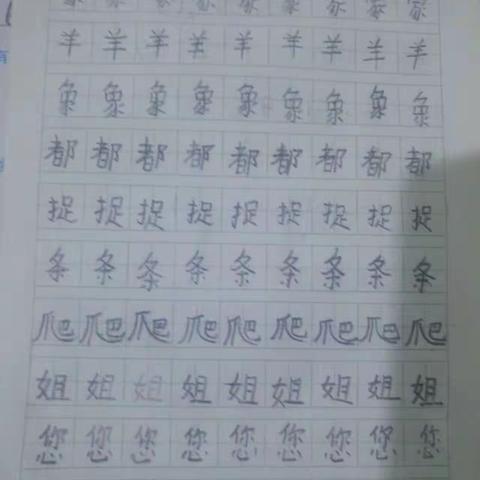 家 家 家 家 家 家 家 家
羊 羊 羊 羊 羊 羊 羊 羊 羊
象 象 象 象 象 象 象 象 象
都 都 都 都 都 都 都 都 都
捉 捉 捉 捉 捉 捉 捉 捉 捉
条 条 条 条 条 条 条 条 条
爬 爬 爬 爬 爬 爬 爬 爬 爬
姐 姐 姐 姐 姐 姐 姐 姐 姐
您 您 您 您 您 您 您 您 您